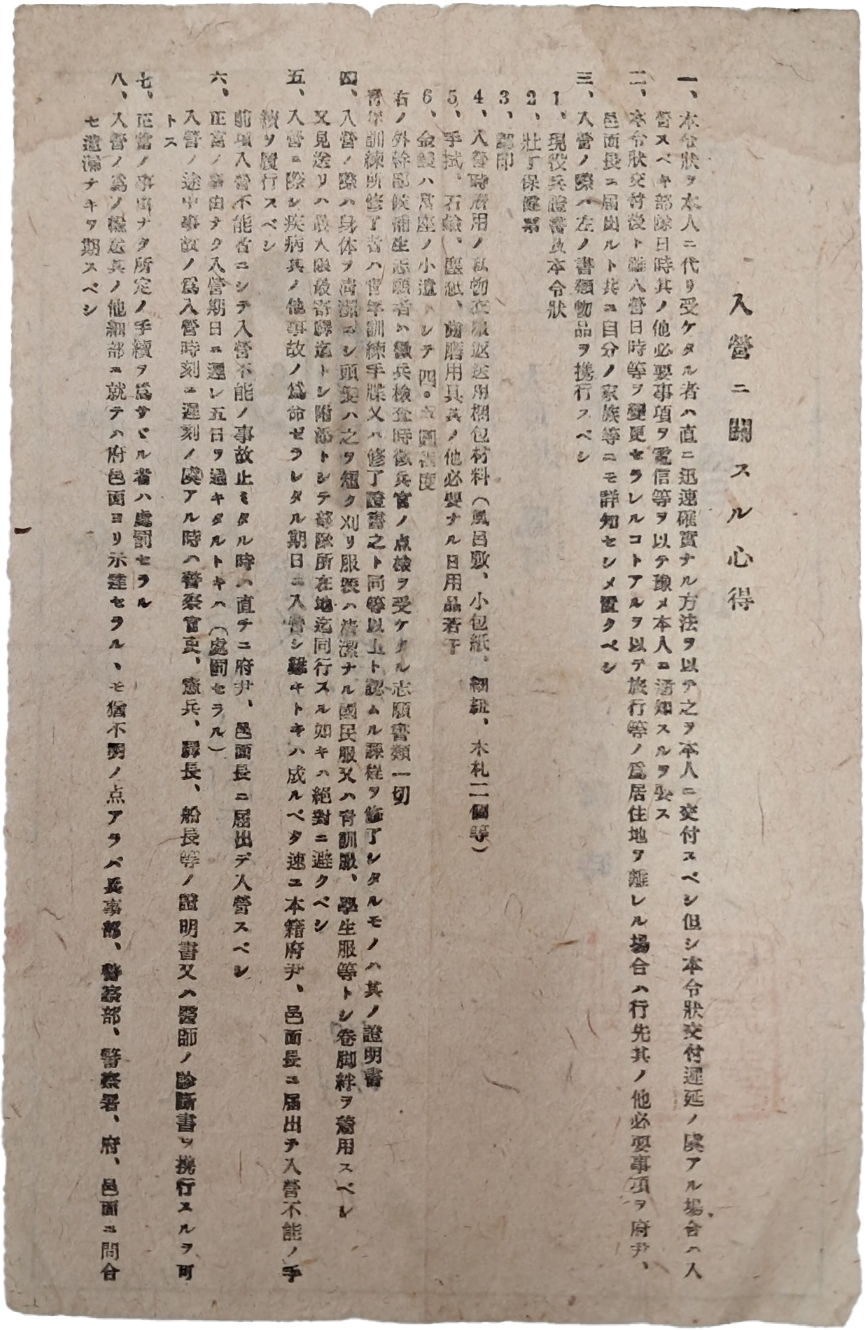 入營ニ關スル心得
一、本令狀ヲ本人ニ代リ受ケタル者ハ直ニ迅速確實ナル方法ヲ以テ之ヲ本人ニ交付スベシ但シ本令狀交付遲延ノ虞アル場合ハ入
營スベキ部隊日時其ノ他必要事項ヲ電信等ヲ以テ豫メ本人ニ通知スルヲ要ス
二、本令狀交付後ト雖入營日時等ヲ變更セラレルコトアルヲ以テ旅行等ノ爲居住地ヲ離レル場合ハ行先其ノ他必要事項ヲ府尹、
邑面長ニ屆出ルト共ニ自分ノ家族等ニモ詳知セシメ置クベシ
三、入營ノ際ハ左ノ書類物品ヲ携行スベシ
1、現役兵證書及本令狀
2、壯丁保健票
3、認印
4、入營時着用ノ私物衣服返送用梱包材料(風呂敷、小包紙、細紐、木札二個等)
5、手拭、石鹼、塵紙、齒磨用具其ノ他必要ナル日用品若干
6、金錢ハ當座ノ小遣トシテ四、五圓程度
右ノ外幹部候補生志願者ハ徵兵檢査時徵兵官ノ点檢ヲ受ケタル志願書類一切
靑年訓練所修了者ハ靑年訓練手牒又ハ修了證書之ト同等以上ト認ムル課程ヲ修了シタルモノハ其ノ證明書
四、入營ノ際ハ身体ヲ淸潔ニシ頭髮ハ之ヲ短ク刈リ服裝ハ淸潔ナル國民服又ハ靑訓服、學生服等トシ卷脚絆ヲ着用スベシ
又見送リハ最大限最寄驛迄トシ附添トシテ部隊所在地迄同行スル如キハ絕對ニ避クベシ
五、入營ニ際シ疾病其ノ他事故ノ爲命ゼラレタル期日ニ入營シ難キトキハ成ルベク速ニ本籍府尹、邑面長ニ屆出テ入營不能ノ手
續ヲ履行スベシ
前項入營不能者ニシテ入營不能ノ事故止ミタル時ハ直チニ府尹、邑面長ニ屆出デ入營スベシ
六、正當ノ事由ナク入營期日ニ遲レ五日ヲ過キタルトキハ(處罰セラル)
入營ノ途中事故ノ爲入營時刻ニ遲刻ノ虞アル時ハ警察官吏、憲兵、驛長、船長等ノ證明書又ハ醫師ノ診斷書ヲ携行スルヲ可
トス
七、正當ノ事由ナク所定ノ手續ヲ爲サザル者ハ處罰セラル
八、入營ノ爲ノ輸送其ノ他細部ニ就テハ府邑面ヨリ示達セラルヽモ猶不明ノ点アラバ兵事部、警察部、警察署、府、邑面ニ問合
セ遺漏ナキヲ期スベシ